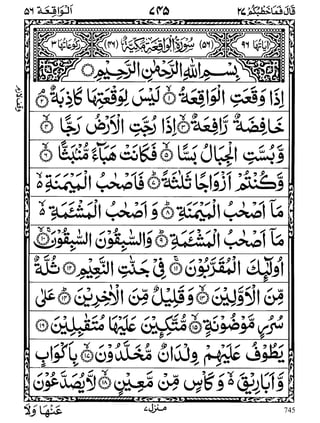 قال فما خطبکم ٢٧ ٧٤٥ الواقعة ٥٦
اٰیاتها ٩٦ (٥٦) سُوْرَةُ الْوَاقِعَةِ مَكِّيَّةٌ (٤٦) رکوعاتها ٣
بِسْمِ اللهِ الرَّحْمٰنِ الرَّحِيْمِ
اِذَا وَقَعَتِ الْوَاقِعَةُ ۙ﴿١﴾ لَيْسَ لِوَقْعَتِهَا كَاذِبَةٌ ۘ﴿٢﴾
خَافِضَةٌ رَّافِعَةٌ ۙ﴿٣﴾ اِذَا رُجَّتِ الْاَرْضُ رَجًّا ۙ﴿٤﴾
وَّ بُسَّتِ الْجِبَالُ بَسًّا ۙ﴿٥﴾ فَكَانَتْ هَبَآءً مُّنْۢبَثًّا ۙ﴿٦﴾
وَّ كُنْتُمْ اَزْوَاجًا ثَلٰثَةً ؕ﴿٧﴾ فَاَصْحٰبُ الْمَيْمَنَةِ ۙ۬
مَاۤ اَصْحٰبُ الْمَيْمَنَةِ ؕ﴿٨﴾ وَ اَصْحٰبُ الْمَشْـَٔمَةِ ۙ۬
مَاۤ اَصْحٰبُ الْمَشْـَٔمَةِ ؕ﴿٩﴾ وَ السّٰبِقُوْنَ السّٰبِقُوْنَ ۚۙ﴿١٠﴾
اُولٰٓئِكَ الْمُقَرَّبُوْنَ ۚ﴿١١﴾ فِيْ جَنّٰتِ النَّعِيْمِ ﴿١٢﴾ ثُلَّةٌ
مِّنَ الْاَوَّلِيْنَ ۙ﴿١٣﴾ وَ قَلِيْلٌ مِّنَ الْاٰخِرِيْنَ ؕ﴿١٤﴾ عَلٰى
سُرُرٍ مَّوْضُوْنَةٍ ۙ﴿١٥﴾ مُّتَّكِـِٕيْنَ عَلَيْهَا مُتَقٰبِلِيْنَ ﴿١٦﴾
يَطُوْفُ عَلَيْهِمْ وِلْدَانٌ مُّخَلَّدُوْنَ ۙ﴿١٧﴾ بِاَكْوَابٍ
وَّ اَبَارِيْقَ ۙ۬ وَ كَاْسٍ مِّنْ مَّعِيْنٍ ۙ﴿١٨﴾ لَّا يُصَدَّعُوْنَ
عَنْهَا وَلَا منزل ٧ 745